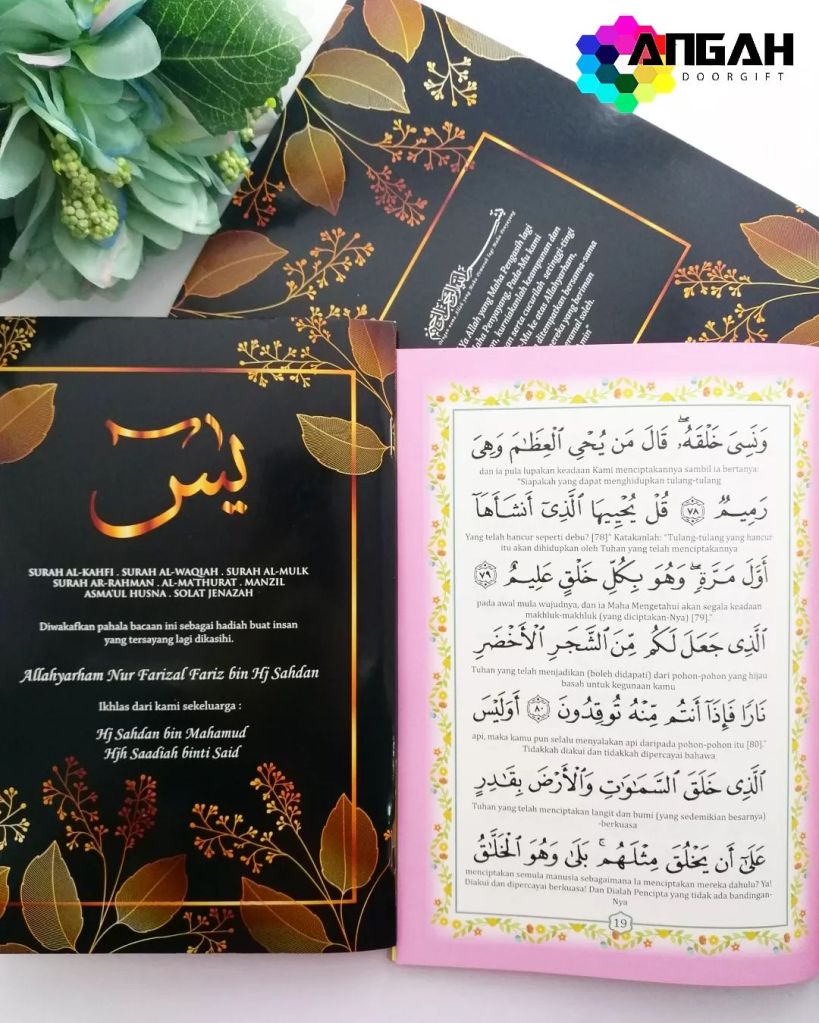 ANGAH
DOORGIFT
Ya Allah yang Maha Pengasih lagi
Maha Penyayang, Pada-Mu kami
kurniakanlah keampunan dan
serta cucurilah setinggi-tinggi
-Mu ke atas Allahyarham,
ditempatkan bersama-sama
mereka yang beriman
beramal soleh.
يس
SURAH AL-KAHFI . SURAH AL-WAQIAH . SURAH AL-MULK
SURAH AR-RAHMAN . AL-MA'THURAT . MANZIL
ASMA'UL HUSNA . SOLAT JENAZAH
Diwakafkan pahala bacaan ini sebagai hadiah buat insan
yang tersayang lagi dikasihi.
Allahyarham Nur Farizal Fariz bin Hj Sahdan
Ikhlas dari kami sekeluarga :
Hj Sahdan bin Mahamud
Hjh Saadiah binti Said
وَنَسِىَ خَلْقَهُۥۖ قَالَ مَن يُحْىِ ٱلْعِظَٰمَ وَهِىَ
dan ia pula lupakan keadaan Kami menciptakannya sambil ia bertanya:
"Siapakah yang dapat menghidupkan tulang-tulang
رَمِيمٌ ٧٨ قُلْ يُحْيِيهَا ٱلَّذِىٓ أَنشَأَهَآ
Yang telah hancur seperti debu? [78]" Katakanlah: "Tulang-tulang yang hancur
itu akan dihidupkan oleh Tuhan yang telah menciptakannya
أَوَّلَ مَرَّةٍۖ وَهُوَ بِكُلِّ خَلْقٍ عَلِيمٌ ٧٩
pada awal mula wujudnya, dan ia Maha Mengetahui akan segala keadaan
makhluk-makhluk (yang diciptakan-Nya) [79]."
ٱلَّذِى جَعَلَ لَكُم مِّنَ ٱلشَّجَرِ ٱلْأَخْضَرِ
Tuhan yang telah menjadikan (boleh didapati) dari pohon-pohon yang hijau
basah untuk kegunaan kamu
نَارًا فَإِذَآ أَنتُم مِّنْهُ تُوقِدُونَ ٨٠ أَوَلَيْسَ
api, maka kamu pun selalu menyalakan api daripada pohon-pohon itu [80]."
Tidakkah diakui dan tidakkah dipercayai bahawa
ٱلَّذِى خَلَقَ ٱلسَّمَٰوَٰتِ وَٱلْأَرْضَ بِقَٰدِرٍ
Tuhan yang telah menciptakan langit dan bumi (yang sedemikian besarnya)
-berkuasa
عَلَىٰٓ أَن يَخْلُقَ مِثْلَهُمۚ بَلَىٰ وَهُوَ ٱلْخَلَّٰقُ
menciptakan semula manusia sebagaimana Ia menciptakan mereka dahulu? Ya!
Diakui dan dipercayai berkuasa! Dan Dialah Pencipta yang tidak ada bandingan-
Nya
19